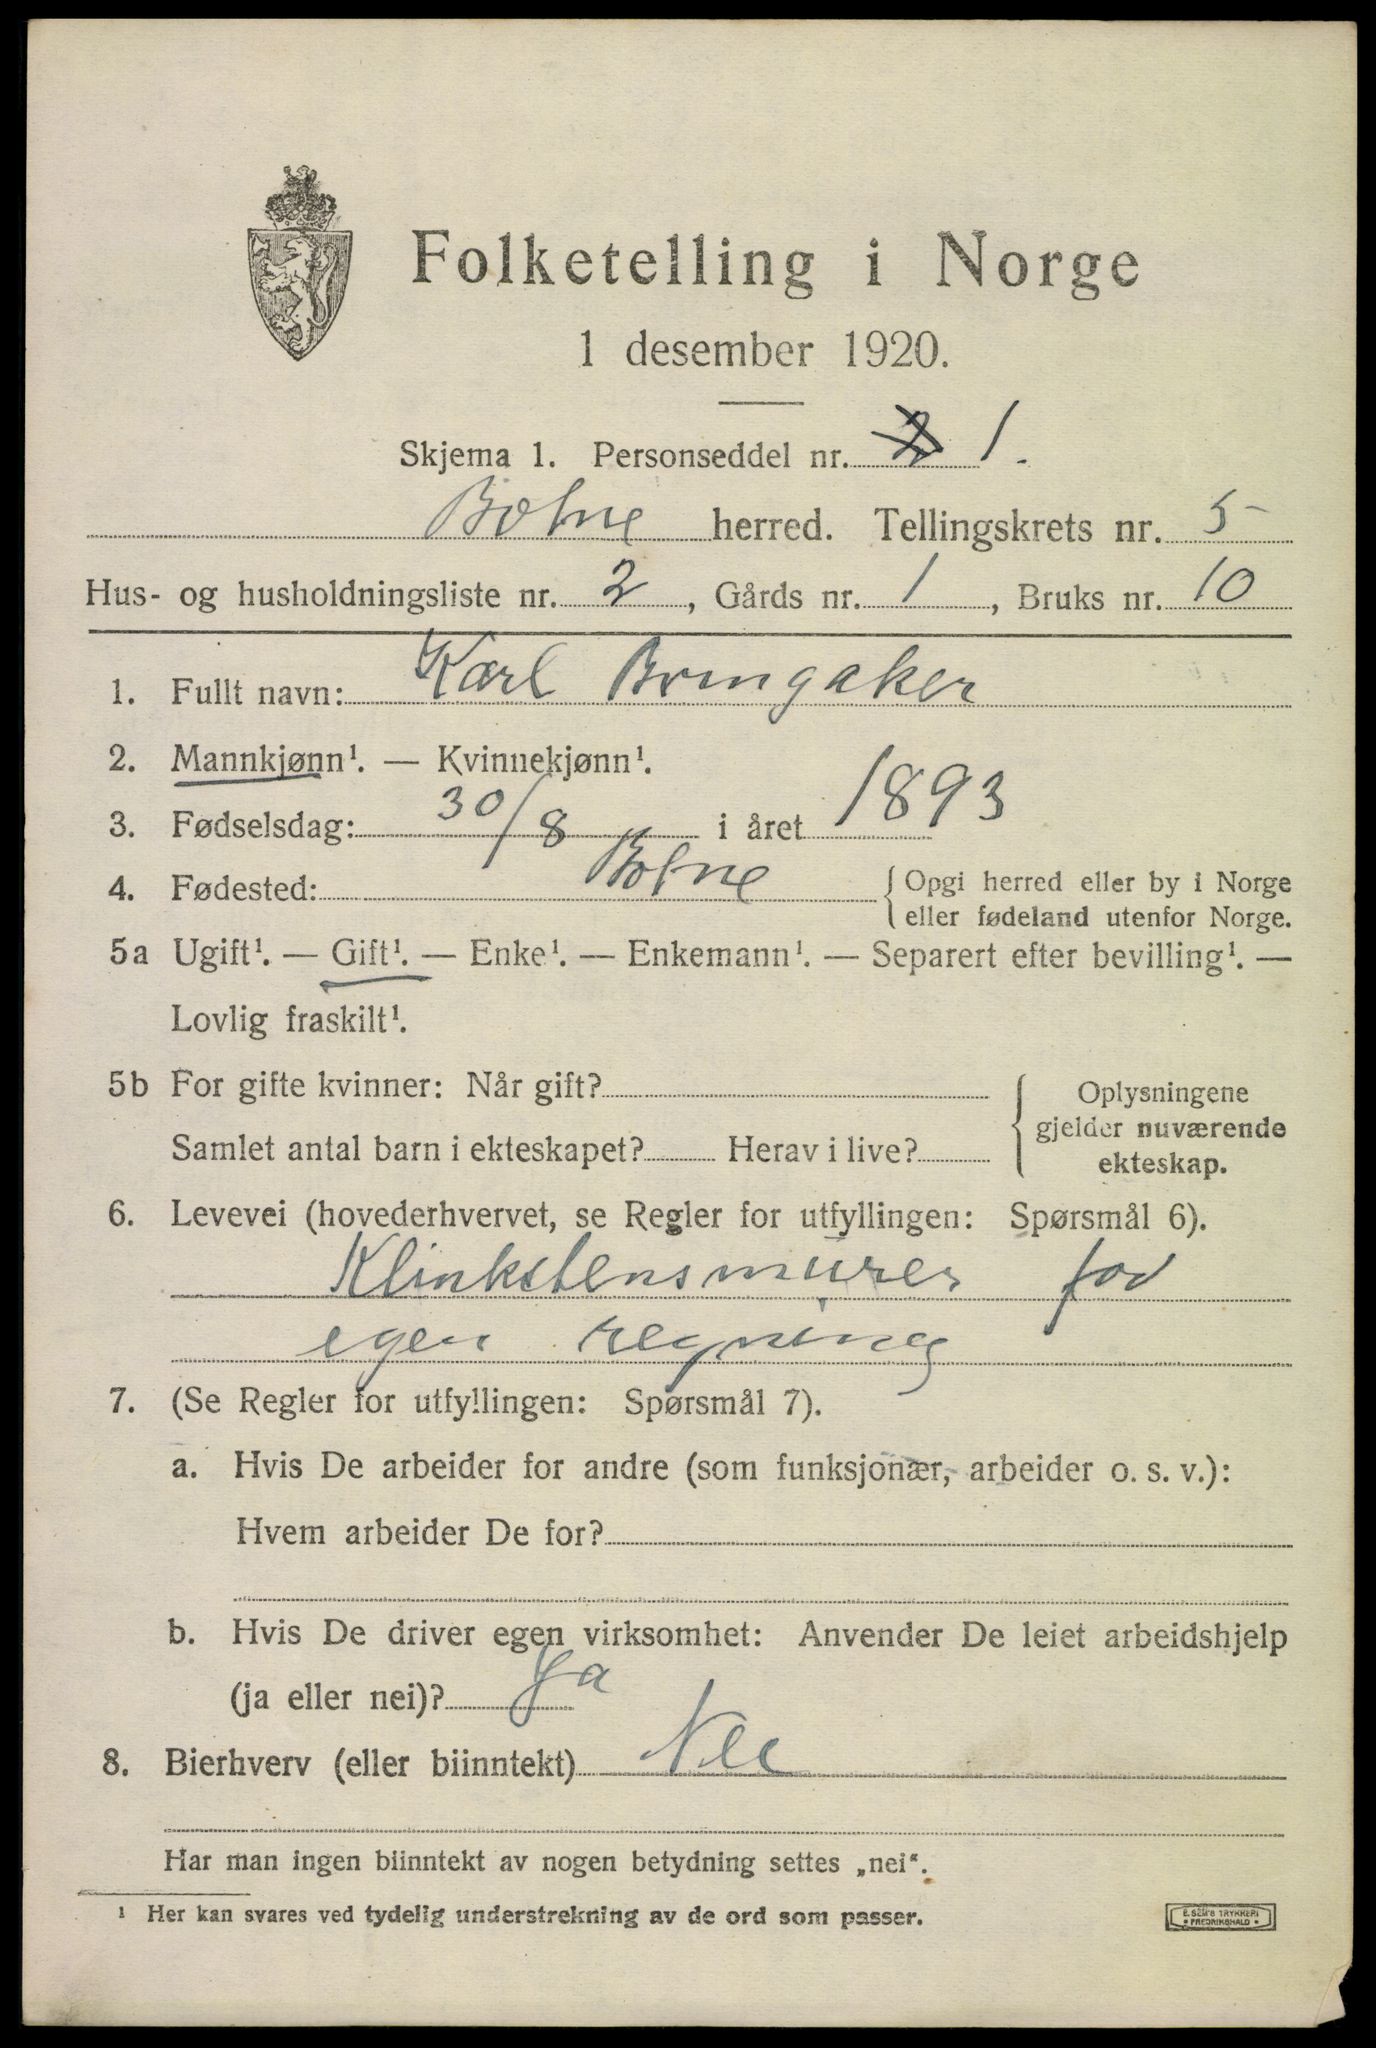 Folketelling i Norge
1 desember 1920.
Skjema 1. Personseddel nr. 2 1.
Botne herred. Tellingskrets nr. 5
Hus- og husholdningsliste nr. 2, Gårds nr. 1, Bruks nr. 10
1. Fullt navn: Karl Bringaker
2. Mannkjønn¹. — Kvinnekjønn¹.
3. Fødselsdag: 30/8 i året 1893
4. Fødested: Botne { Opgi herred eller by i Norge
eller fødeland utenfor Norge.
5a Ugift¹. — Gift¹. — Enke¹. — Enkemann¹. — Separert efter bevilling¹. —
Lovlig fraskilt¹.
5b For gifte kvinner: Når gift?
Samlet antal barn i ekteskapet? Herav i live?
{ Oplysningene
gjelder nuværende
ekteskap.
6. Levevei (hovederhvervet, se Regler for utfyllingen: Spørsmål 6).
Klinkstensmurer for
egen regning
7. (Se Regler for utfyllingen: Spørsmål 7).
a. Hvis De arbeider for andre (som funksjonær, arbeider o. s. v.):
Hvem arbeider De for?
b. Hvis De driver egen virksomhet: Anvender De leiet arbeidshjelp
(ja eller nei)? Ja
8. Bierhverv (eller biinntekt) Nei
Har man ingen biinntekt av nogen betydning settes „nei“.
¹ Her kan svares ved tydelig understrekning av de ord som passer.
E. SEM'S TRYKKERI
• FREDRIKSHALD •